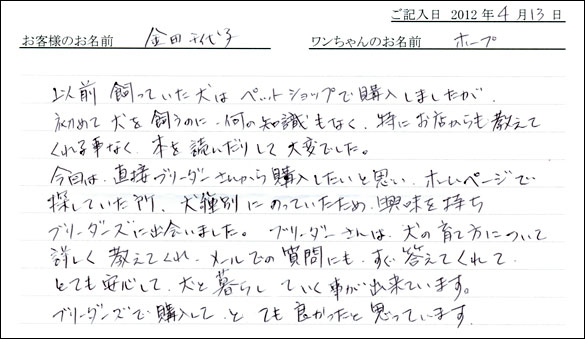 ご記入日 2012年4月13日
お客様のお名前 金田千代子 ワンちゃんのお名前 ホープ
以前飼っていた犬はペットショップで購入しましたが、
初めて犬を飼うのに何の知識もなく、特にお店からも教えて
くれる事なく、本を読んだりして大変でした。
今回は、直接ブリーダーさんから購入したいと思い、ホームページで
探していた所、犬種別にのっていたため、興味を持ち
ブリーダーズに出会いました。ブリーダーさんは、犬の育て方について
詳しく教えてくれ、メールでの質問にも、すぐ答えてくれて、
とても安心して、犬と暮らしていく事が出来ています。
ブリーダーズで購入して、とても良かったと思っています。